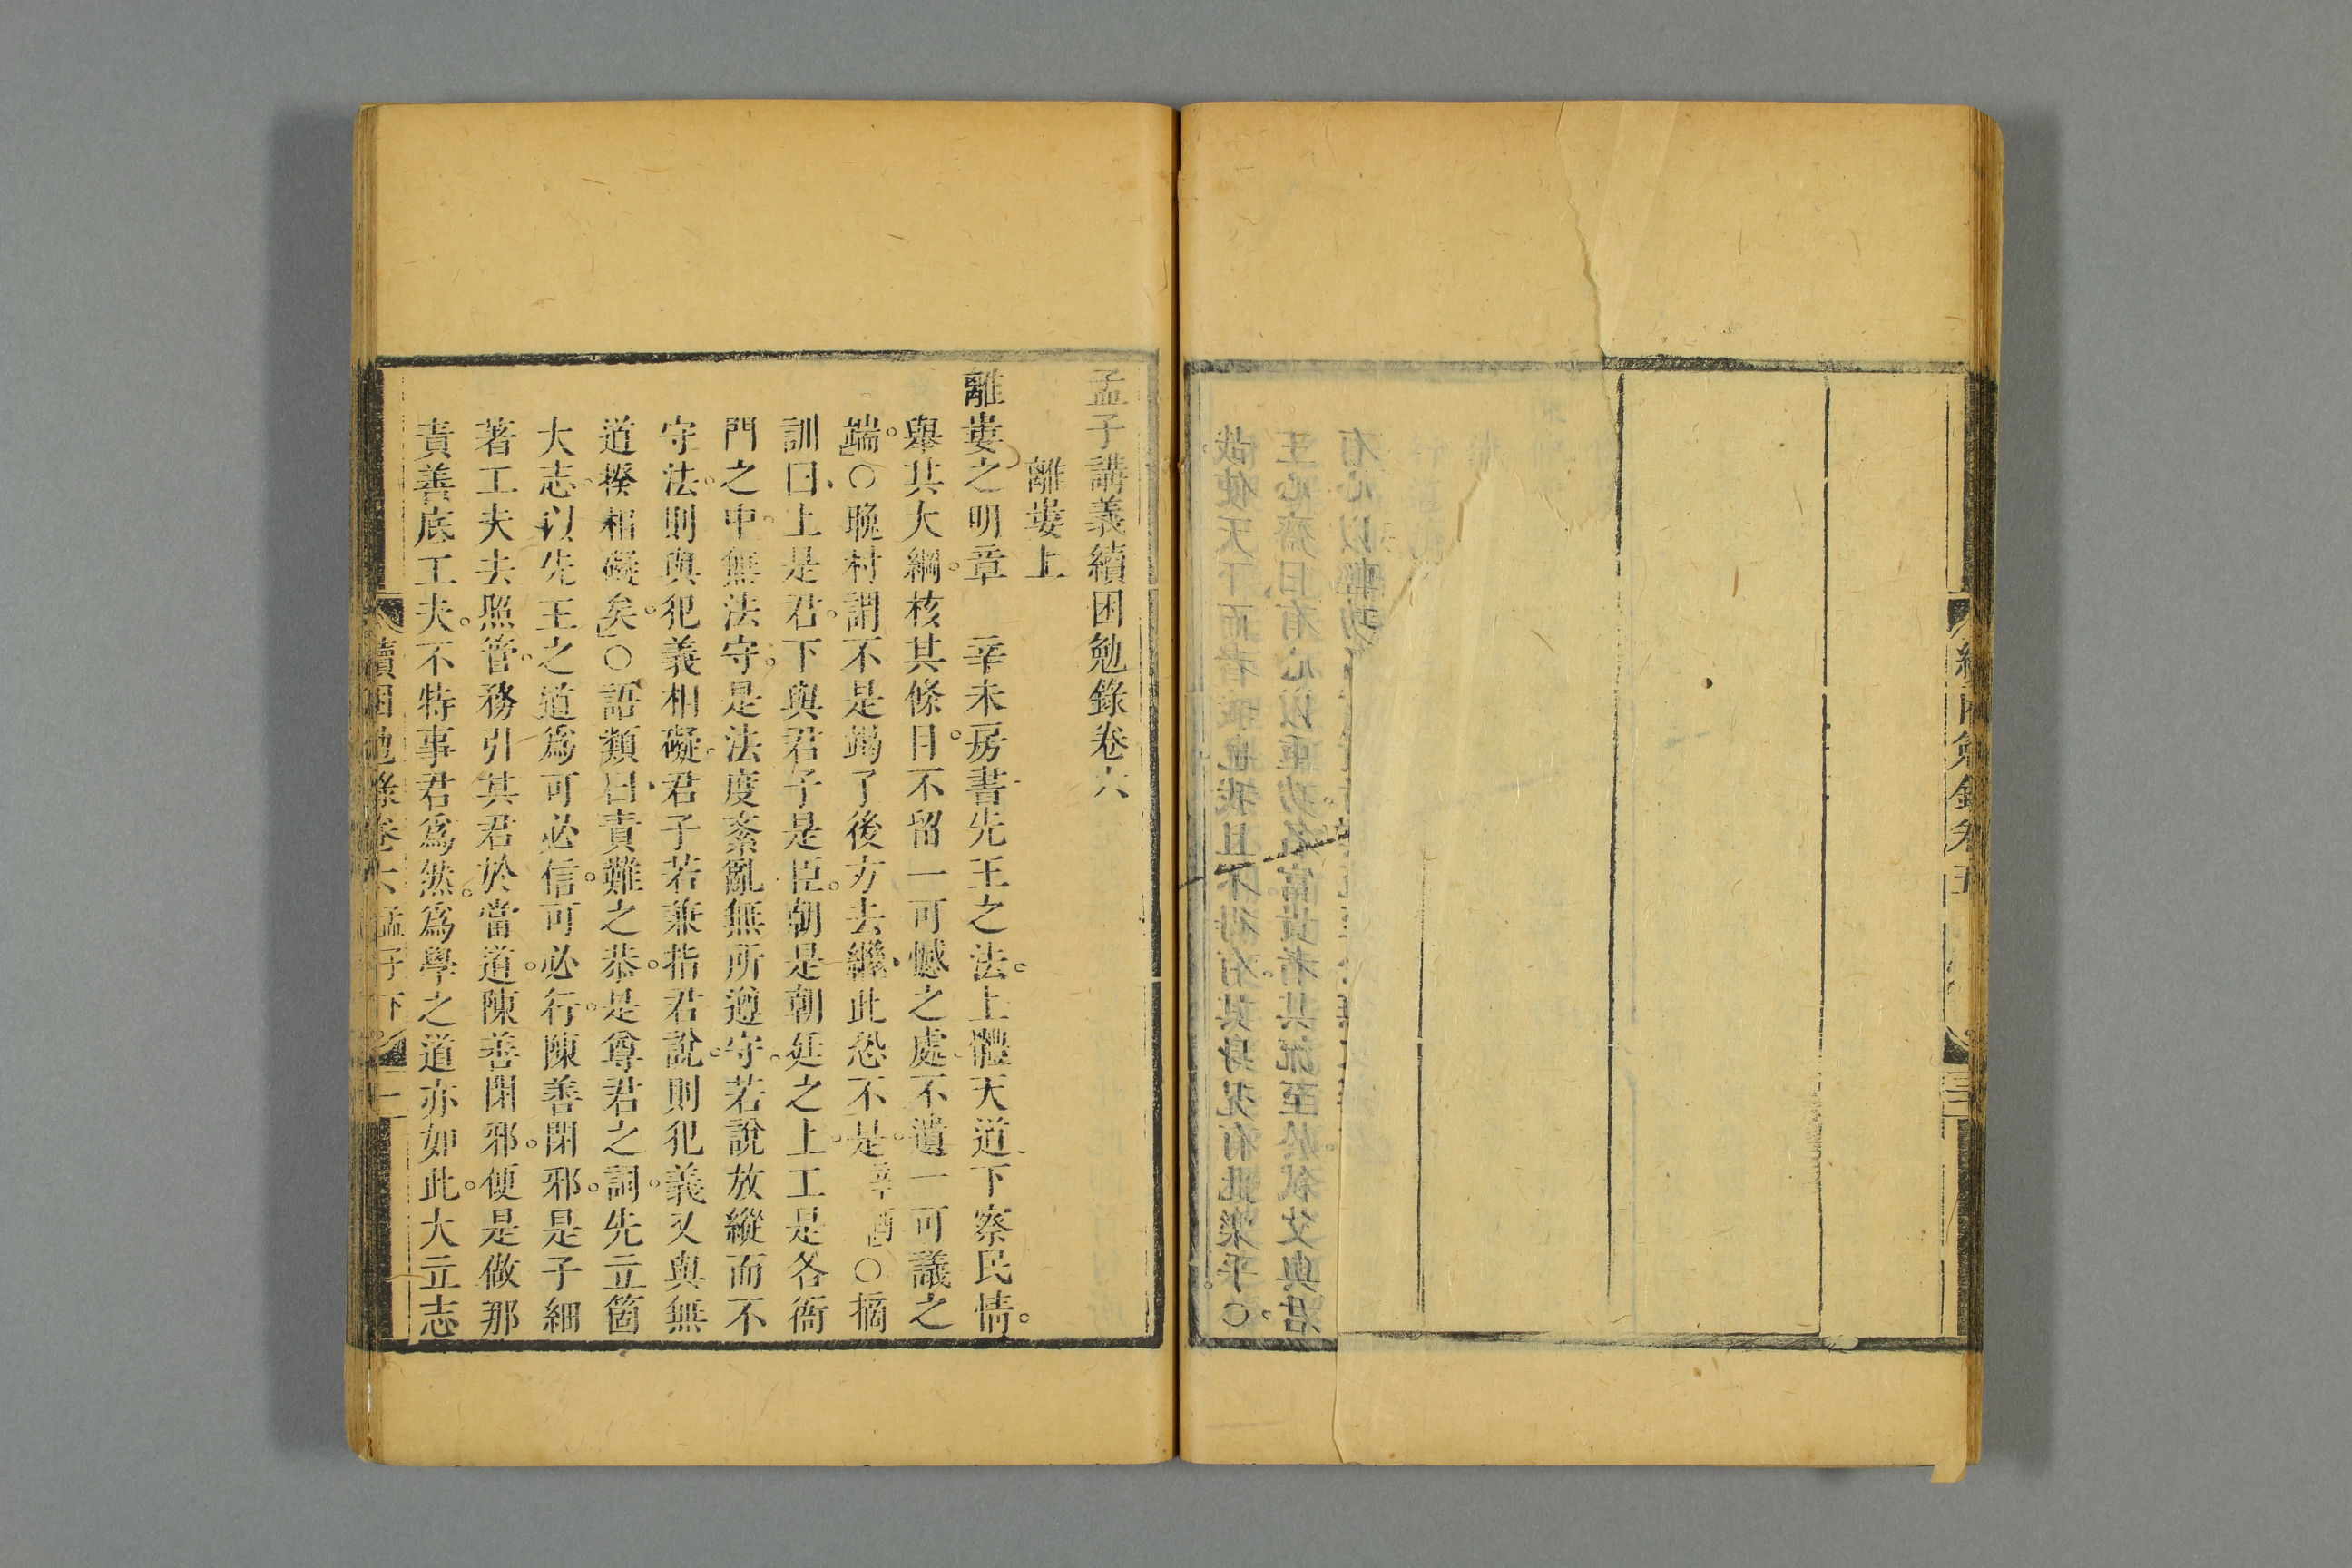 續困勉錄卷五
孟子講義續困勉錄卷六
離婁上
離婁之明章　辛未房書先王之法。上體天道、下察民情。
舉其大綱。核其條目。不留一可憾之處、不遺一可議之
端。○晚村謂不是竭了後方去繼此恐不是。辛酉○摘
訓曰、上是君。下與君子是臣。朝是朝廷之上。工是各衙
門之中。無法守。是法度紊亂無所遵守。若說放縱而不
守法。則與犯義相礙。君子若兼指君說。則犯義又與無
道揆相礙矣。○語類曰、責難之恭。是尊君之詞。先立箇
大志。以先王之道爲可必信。可必行。陳善閉邪。是子細
著工夫去照管。務引其君於當道。陳善閉邪。便是做那
責善底工夫。不特事君爲然。爲學之道亦如此。大立志
續困勉錄卷六 孟子下